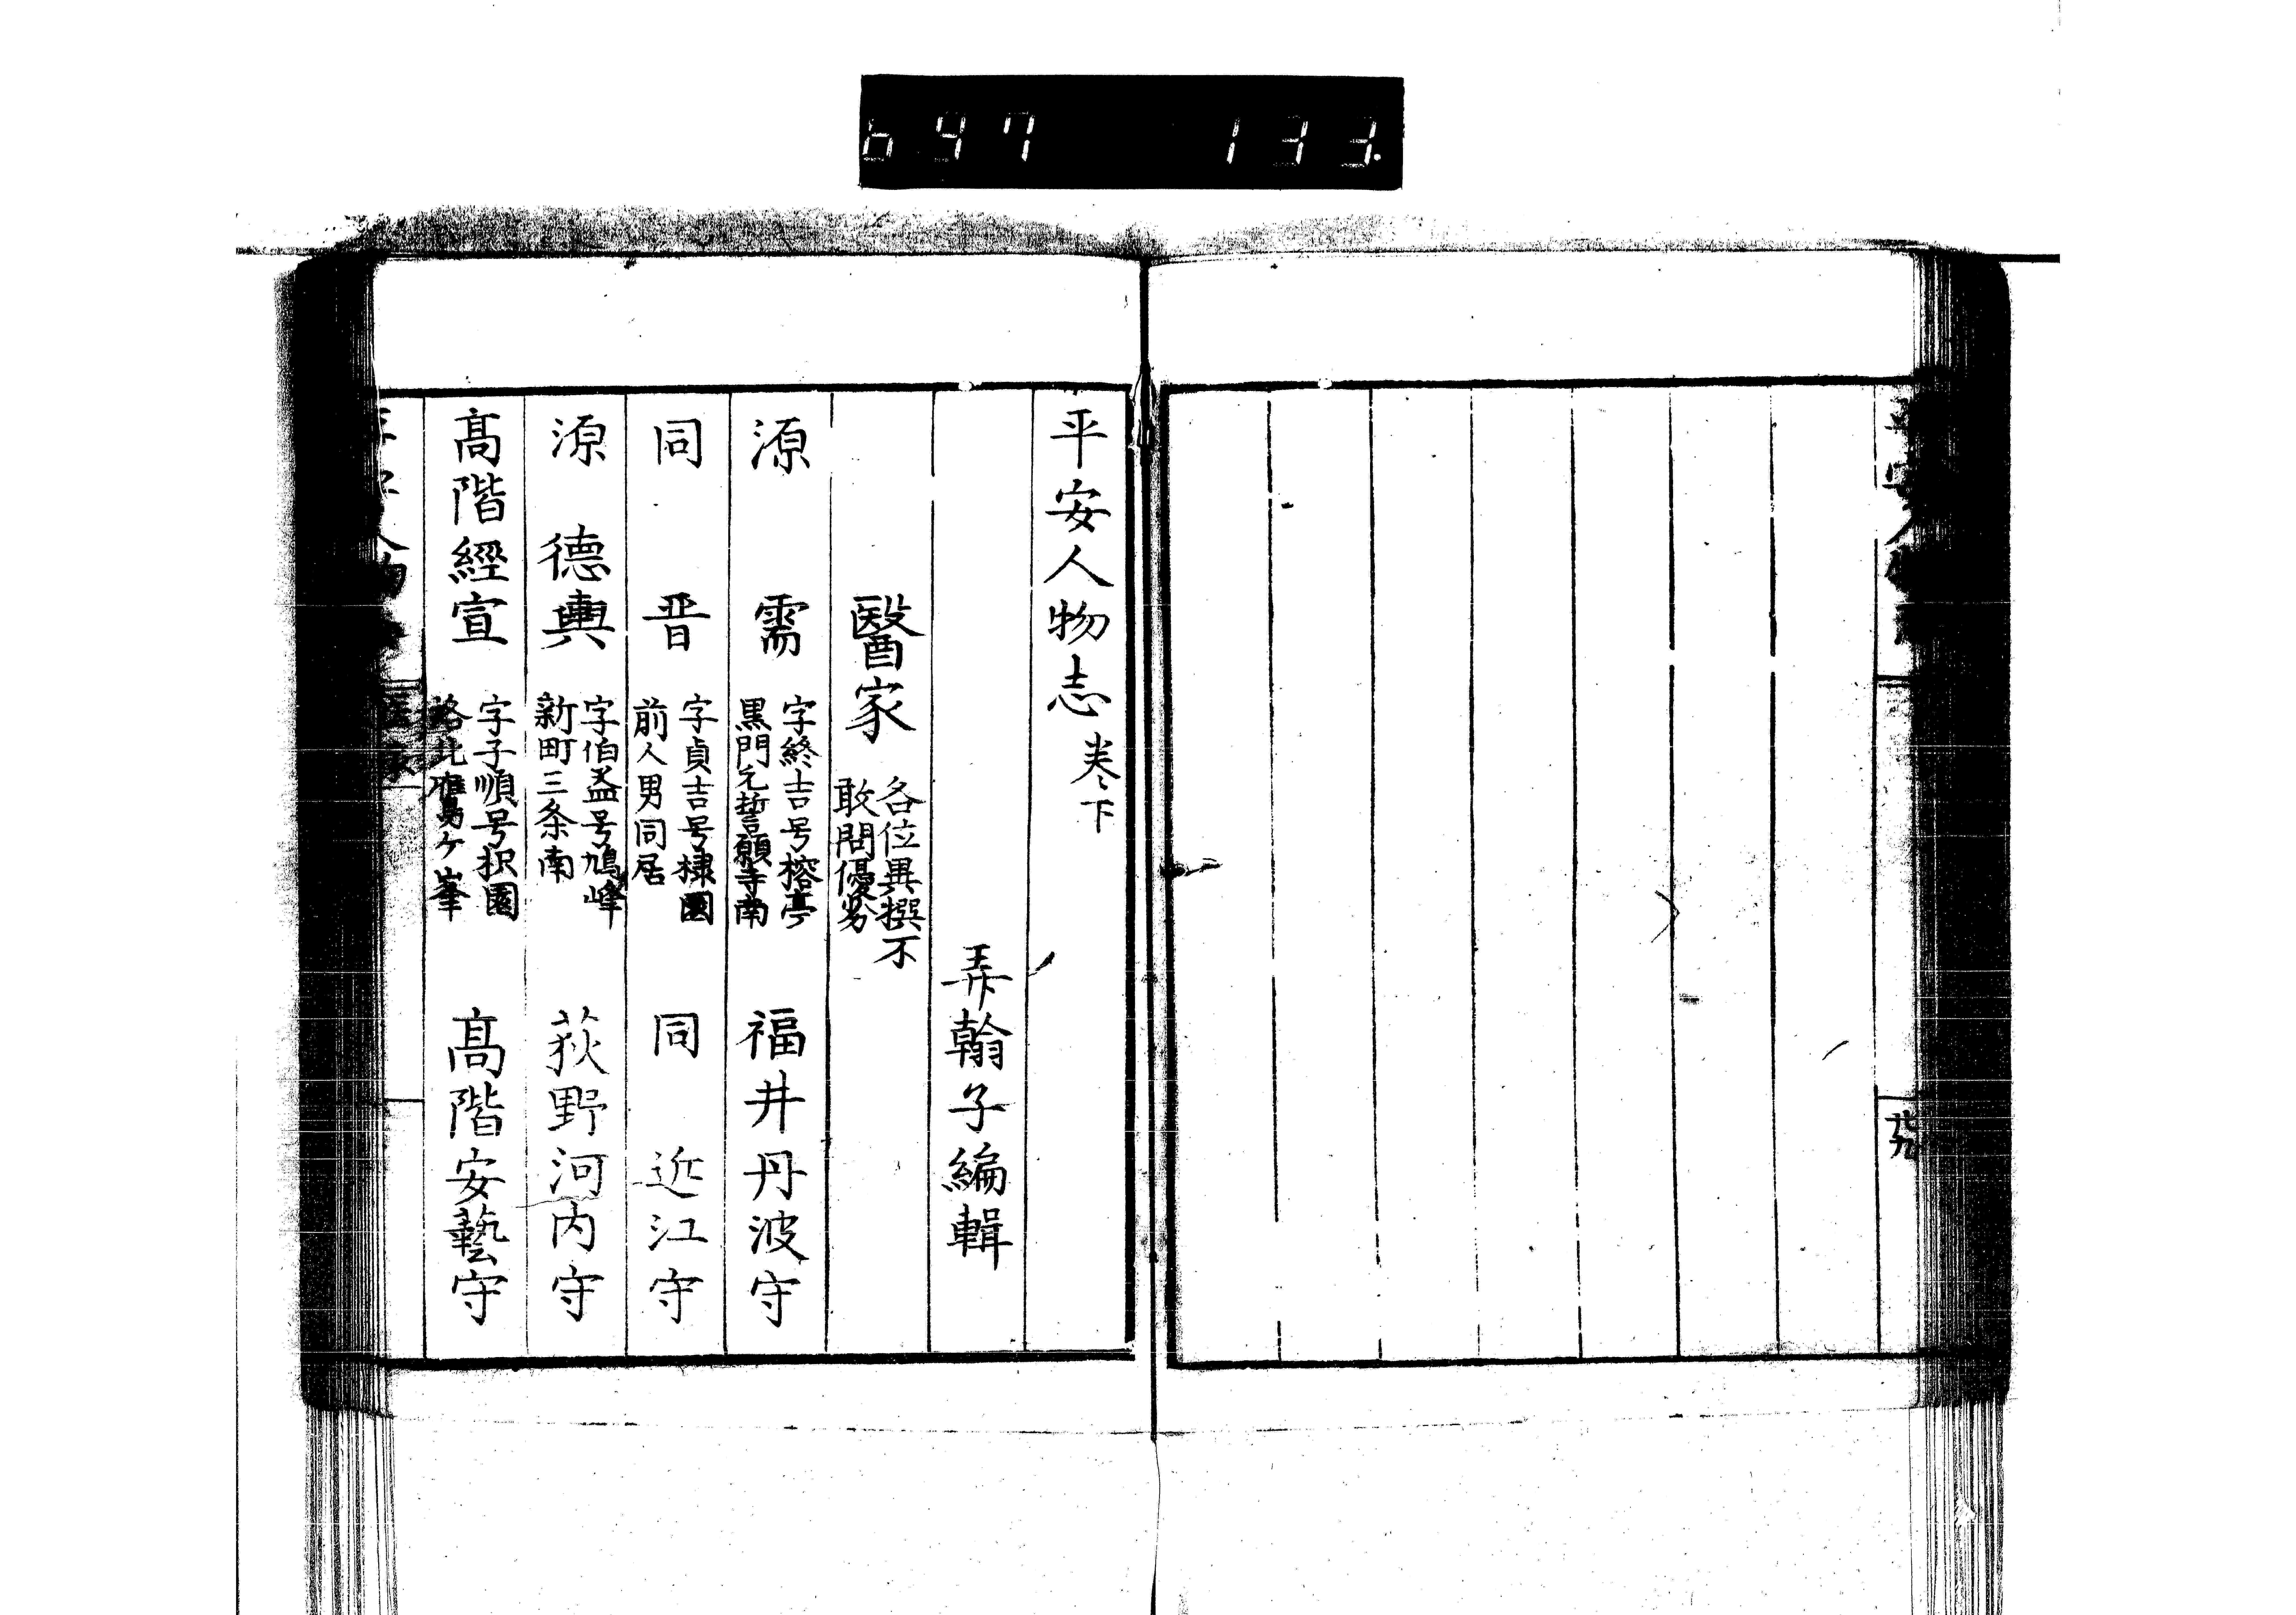 647 133.
平安人物志 卷下
弄翰子編輯
醫家 各位異撰不
敢問優劣
源 需 字終吉号榕亭
黒門元誓願寺南
福井丹波守
同 晋 字貞吉号棣園
前人男同居
同 近江守
源 德輿 字伯益号鳩峰
新町三条南
荻野河内守
髙階經宣 字子順号枳園
洛北鷹ヶ峯
髙階安藝守